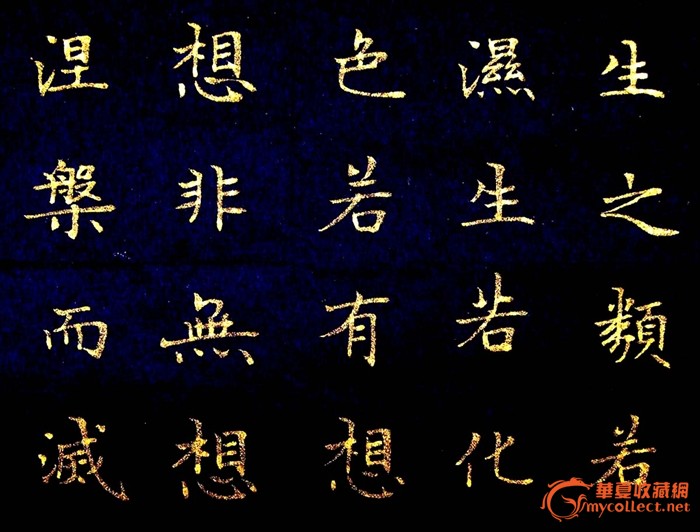 生之類若
濕生若化
色若有想
想非無想
涅槃而滅
華夏收藏網
mycollect.net